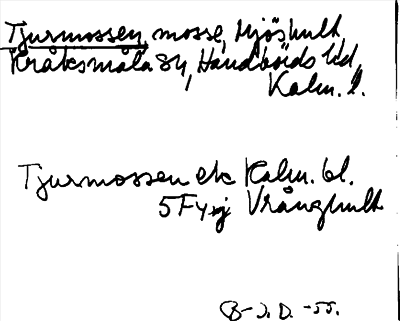 Tjurmossen, mosse, Mjöshult,
Kråksmåla sn, Handbörds hd,
Kalm. l.
Tjurmossen ek Kalm. bl.
5F4 Vrånghult
B-J. D. -55.